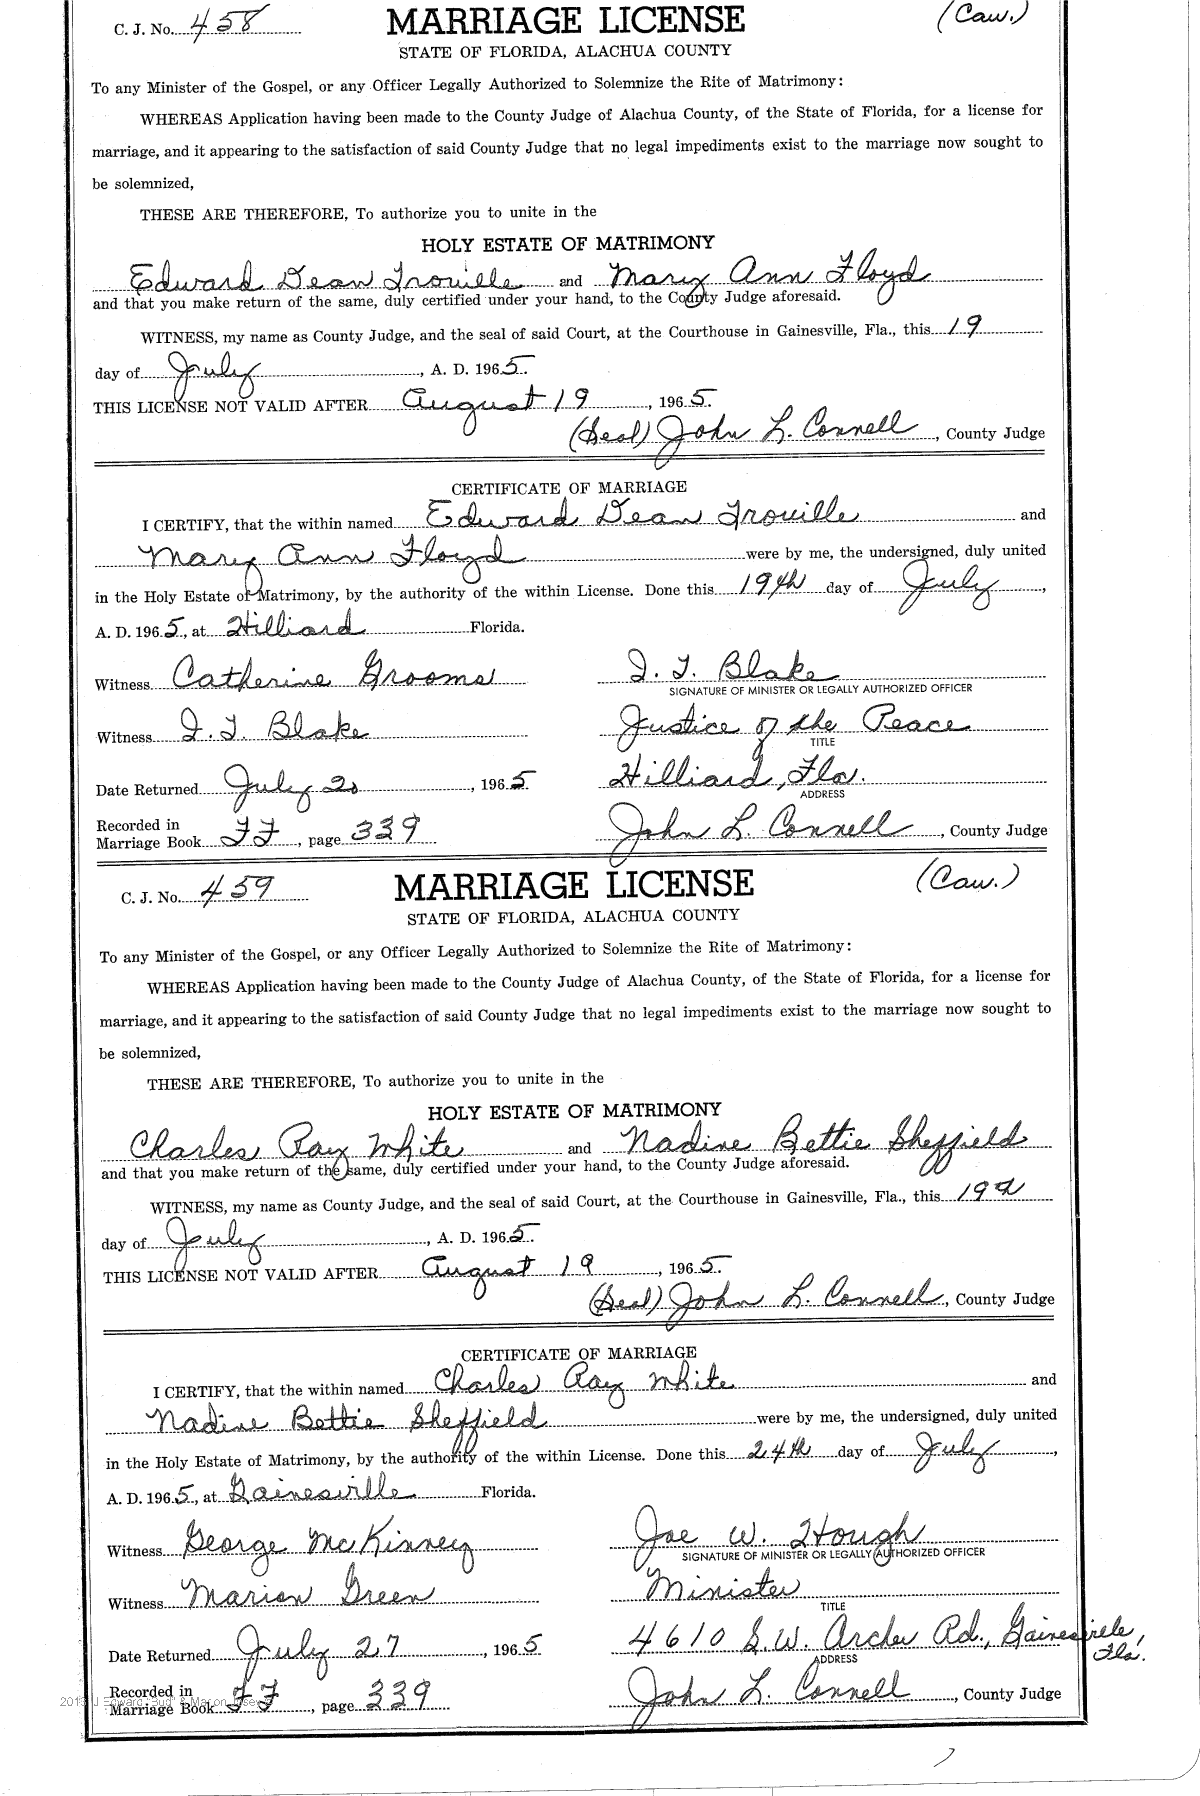 C. J. No. 458 MARRIAGE LICENSE (Cau.)
STATE OF FLORIDA, ALACHUA COUNTY
To any Minister of the Gospel, or any Officer Legally Authorized to Solemnize the Rite of Matrimony:
WHEREAS Application having been made to the County Judge of Alachua County, of the State of Florida, for a license for
marriage, and it appearing to the satisfaction of said County Judge that no legal impediments exist to the marriage now sought to
be solemnized,
THESE ARE THEREFORE, To authorize you to unite in the
HOLY ESTATE OF MATRIMONY
Edward Dean Trouille and Mary Ann Floyd
and that you make return of the same, duly certified under your hand, to the County Judge aforesaid.
WITNESS, my name as County Judge, and the seal of said Court, at the Courthouse in Gainesville, Fla., this 19
day of July, A. D. 1965.
THIS LICENSE NOT VALID AFTER August 19, 1965.
(Seal) John L. Connell, County Judge
CERTIFICATE OF MARRIAGE
I CERTIFY, that the within named Edward Dean Trouille and
Mary Ann Floyd were by me, the undersigned, duly united
in the Holy Estate of Matrimony, by the authority of the within License. Done this 19th day of July,
A. D. 1965, at Hilliard Florida.
Witness Catherine Grooms I. T. Blake
SIGNATURE OF MINISTER OR LEGALLY AUTHORIZED OFFICER
Witness I. T. Blake Justice of the Peace
TITLE
Date Returned July 20, 1965. Hilliard, Fla.
ADDRESS
Recorded in
Marriage Book FF, page 339 John L. Connell, County Judge
C. J. No. 459 MARRIAGE LICENSE (Cau.)
STATE OF FLORIDA, ALACHUA COUNTY
To any Minister of the Gospel, or any Officer Legally Authorized to Solemnize the Rite of Matrimony:
WHEREAS Application having been made to the County Judge of Alachua County, of the State of Florida, for a license for
marriage, and it appearing to the satisfaction of said County Judge that no legal impediments exist to the marriage now sought to
be solemnized,
THESE ARE THEREFORE, To authorize you to unite in the
HOLY ESTATE OF MATRIMONY
Charles Ray White and Nadine Bettie Sheffield
and that you make return of the same, duly certified under your hand, to the County Judge aforesaid.
WITNESS, my name as County Judge, and the seal of said Court, at the Courthouse in Gainesville, Fla., this 19
day of July, A. D. 1965.
THIS LICENSE NOT VALID AFTER August 19, 1965.
(Seal) John L. Connell, County Judge
CERTIFICATE OF MARRIAGE
I CERTIFY, that the within named Charles Ray White and
Nadine Bettie Sheffield were by me, the undersigned, duly united
in the Holy Estate of Matrimony, by the authority of the within License. Done this 24th day of July,
A. D. 1965, at Gainesville Florida.
Witness George McKinney Joe W. Hough
SIGNATURE OF MINISTER OR LEGALLY AUTHORIZED OFFICER
Witness Marion Green Minister
TITLE
Date Returned July 27, 1965 4610 S.W. Archer Rd., Gainesville,
Fla.
ADDRESS
Recorded in
Marriage Book FF, page 339 John L. Connell, County Judge